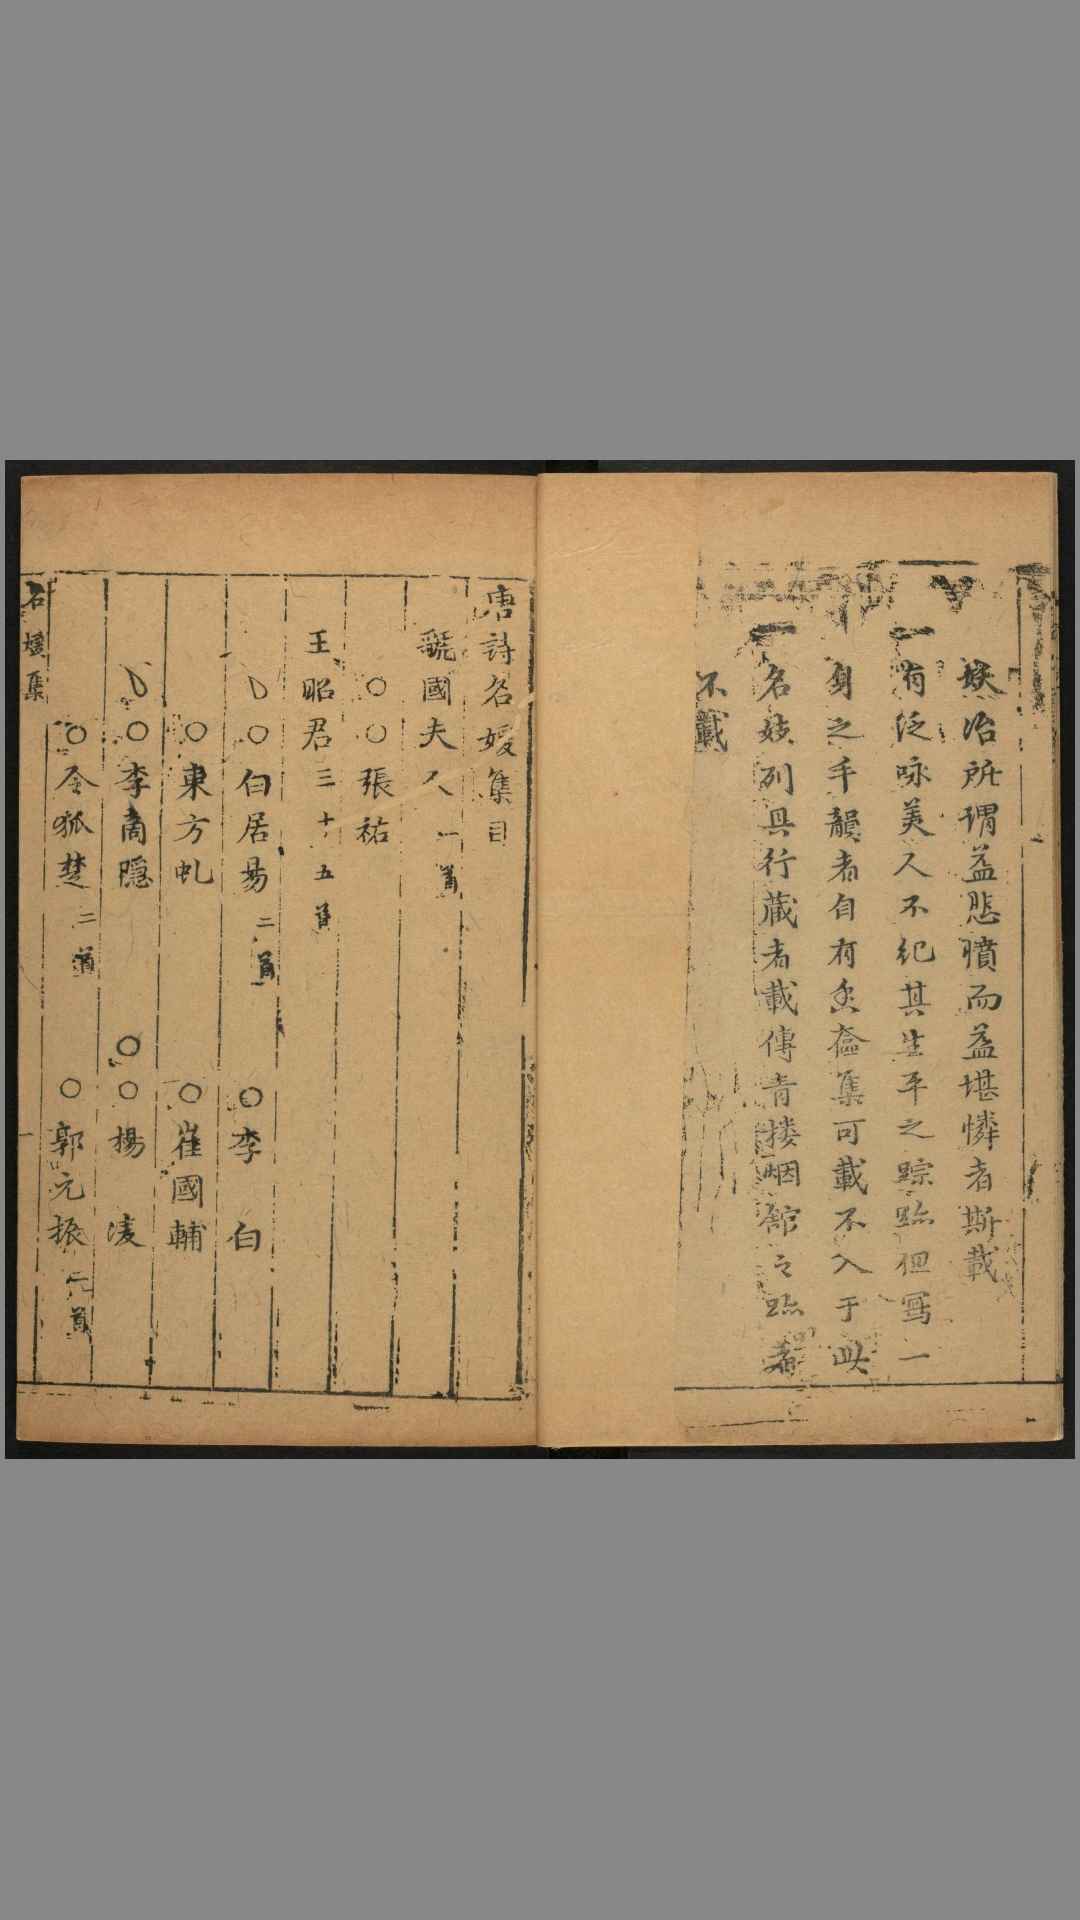 妖冶所謂益悲膹而益堪憐者斯載
一有泛咏美人不紀其生平之踪跡但寫一
身之手韻者自有香奩集可載不入于此
一名妓列具行藏者載傳青摟烟舘之跡者
不載
唐詩名媛集目
虢國夫人一首
○○張祜
王昭君三十五首
○白居易二首 ○李白
○東方虬 ○崔國輔
○李商隱 ○○楊凌
○令狐楚二首 ○郭元振首
名媛集